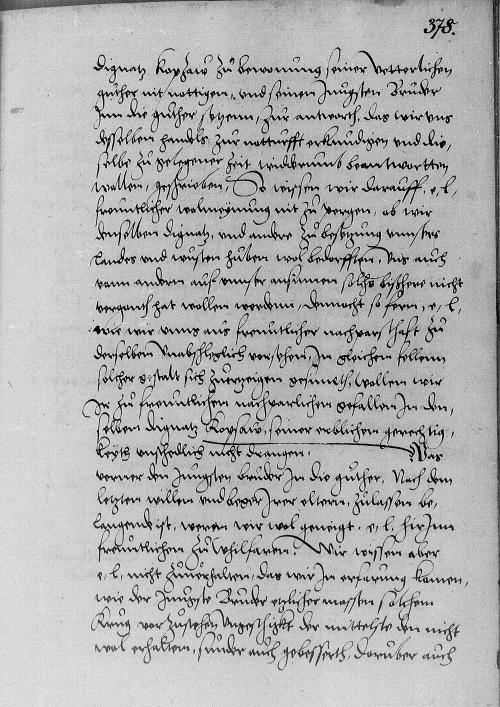 378.
dignatz Kopsaw zu bewonung seiner vetterlichen
guther nit nottigen, vnd seinen Jungsten Bruder
Jnn die guther setzenn, zur antworth, das wir vns
desselben handels zur notturfft erkundigen vnd die-
selbe zu gelegener zeit widderumb beantwortten
wolten, geschrieben, So wissen wir darauff, e, l,
freuntlicher wolmeynung nit zu pergen, ob wir
denselben dignatz, vnd andere zu besetzung vnsers
Landes vnd wusten huben wol bedorfften, Vns auch
vonn andern auf vnser ansinnen solchs bisshere nicht
vergonth hat wollen werdenn, dennocht so fern, e, l,
wie wir vnns aus freuntlicher nachparschafft zu
derselben vnabschleglich vorsehen, Jn gleichen fellenn
solcher gestalt sich zuerzeigen gesinneth, wollenn wir
Jr zu freuntlichen nachparlichen gefallen Jn den-
selben dignatz Kopsaw, seiner erblichen gerechtig-
keyth vnschedlich nicht drangen. Was
verner den Jungsten bruder Jn die guther, Nach dem
letzten willen vnd beger Jrer eltern, zulassen be-
langende ist, weren wir wol geneigt, e, l, hirJnn
freuntlichen zu whilfaren, Wir wissen aber
e, l, nicht zuuerhalten, das wir Jn erfarung komen,
wie der Jungste Bruder etzlicher massen solchem
Krug vor zustehen vngeschigkt der mittelste den nicht
wol erhalten, sunder auch gebesserth, daruber auch